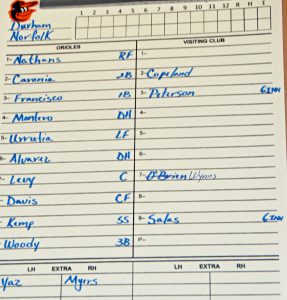 Durham
Norfolk
1 2 3 4 5 6 7 8 9 10 11 12 R H E
ORIOLES VISITING CLUB
1- Nathans RF 1-
2- Caronia 2B 2- Copeland
3- Francisco 1B 3- Peterson GINN
4- Montero DH 4-
5- Urrutia LF 5-
6- Alvarez DH 6-
7- Levy C 7- O'Brien Wynns
8- Davis CF 8-
9- Kemp SS 9- Salas GINN
Woody 3B P-
LH EXTRA RH LH EXTRA RH
Yaz Myers